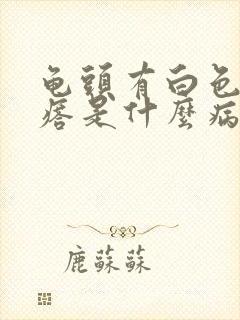 龟頭有白色
痞是什麼病
鹿蘇蘇